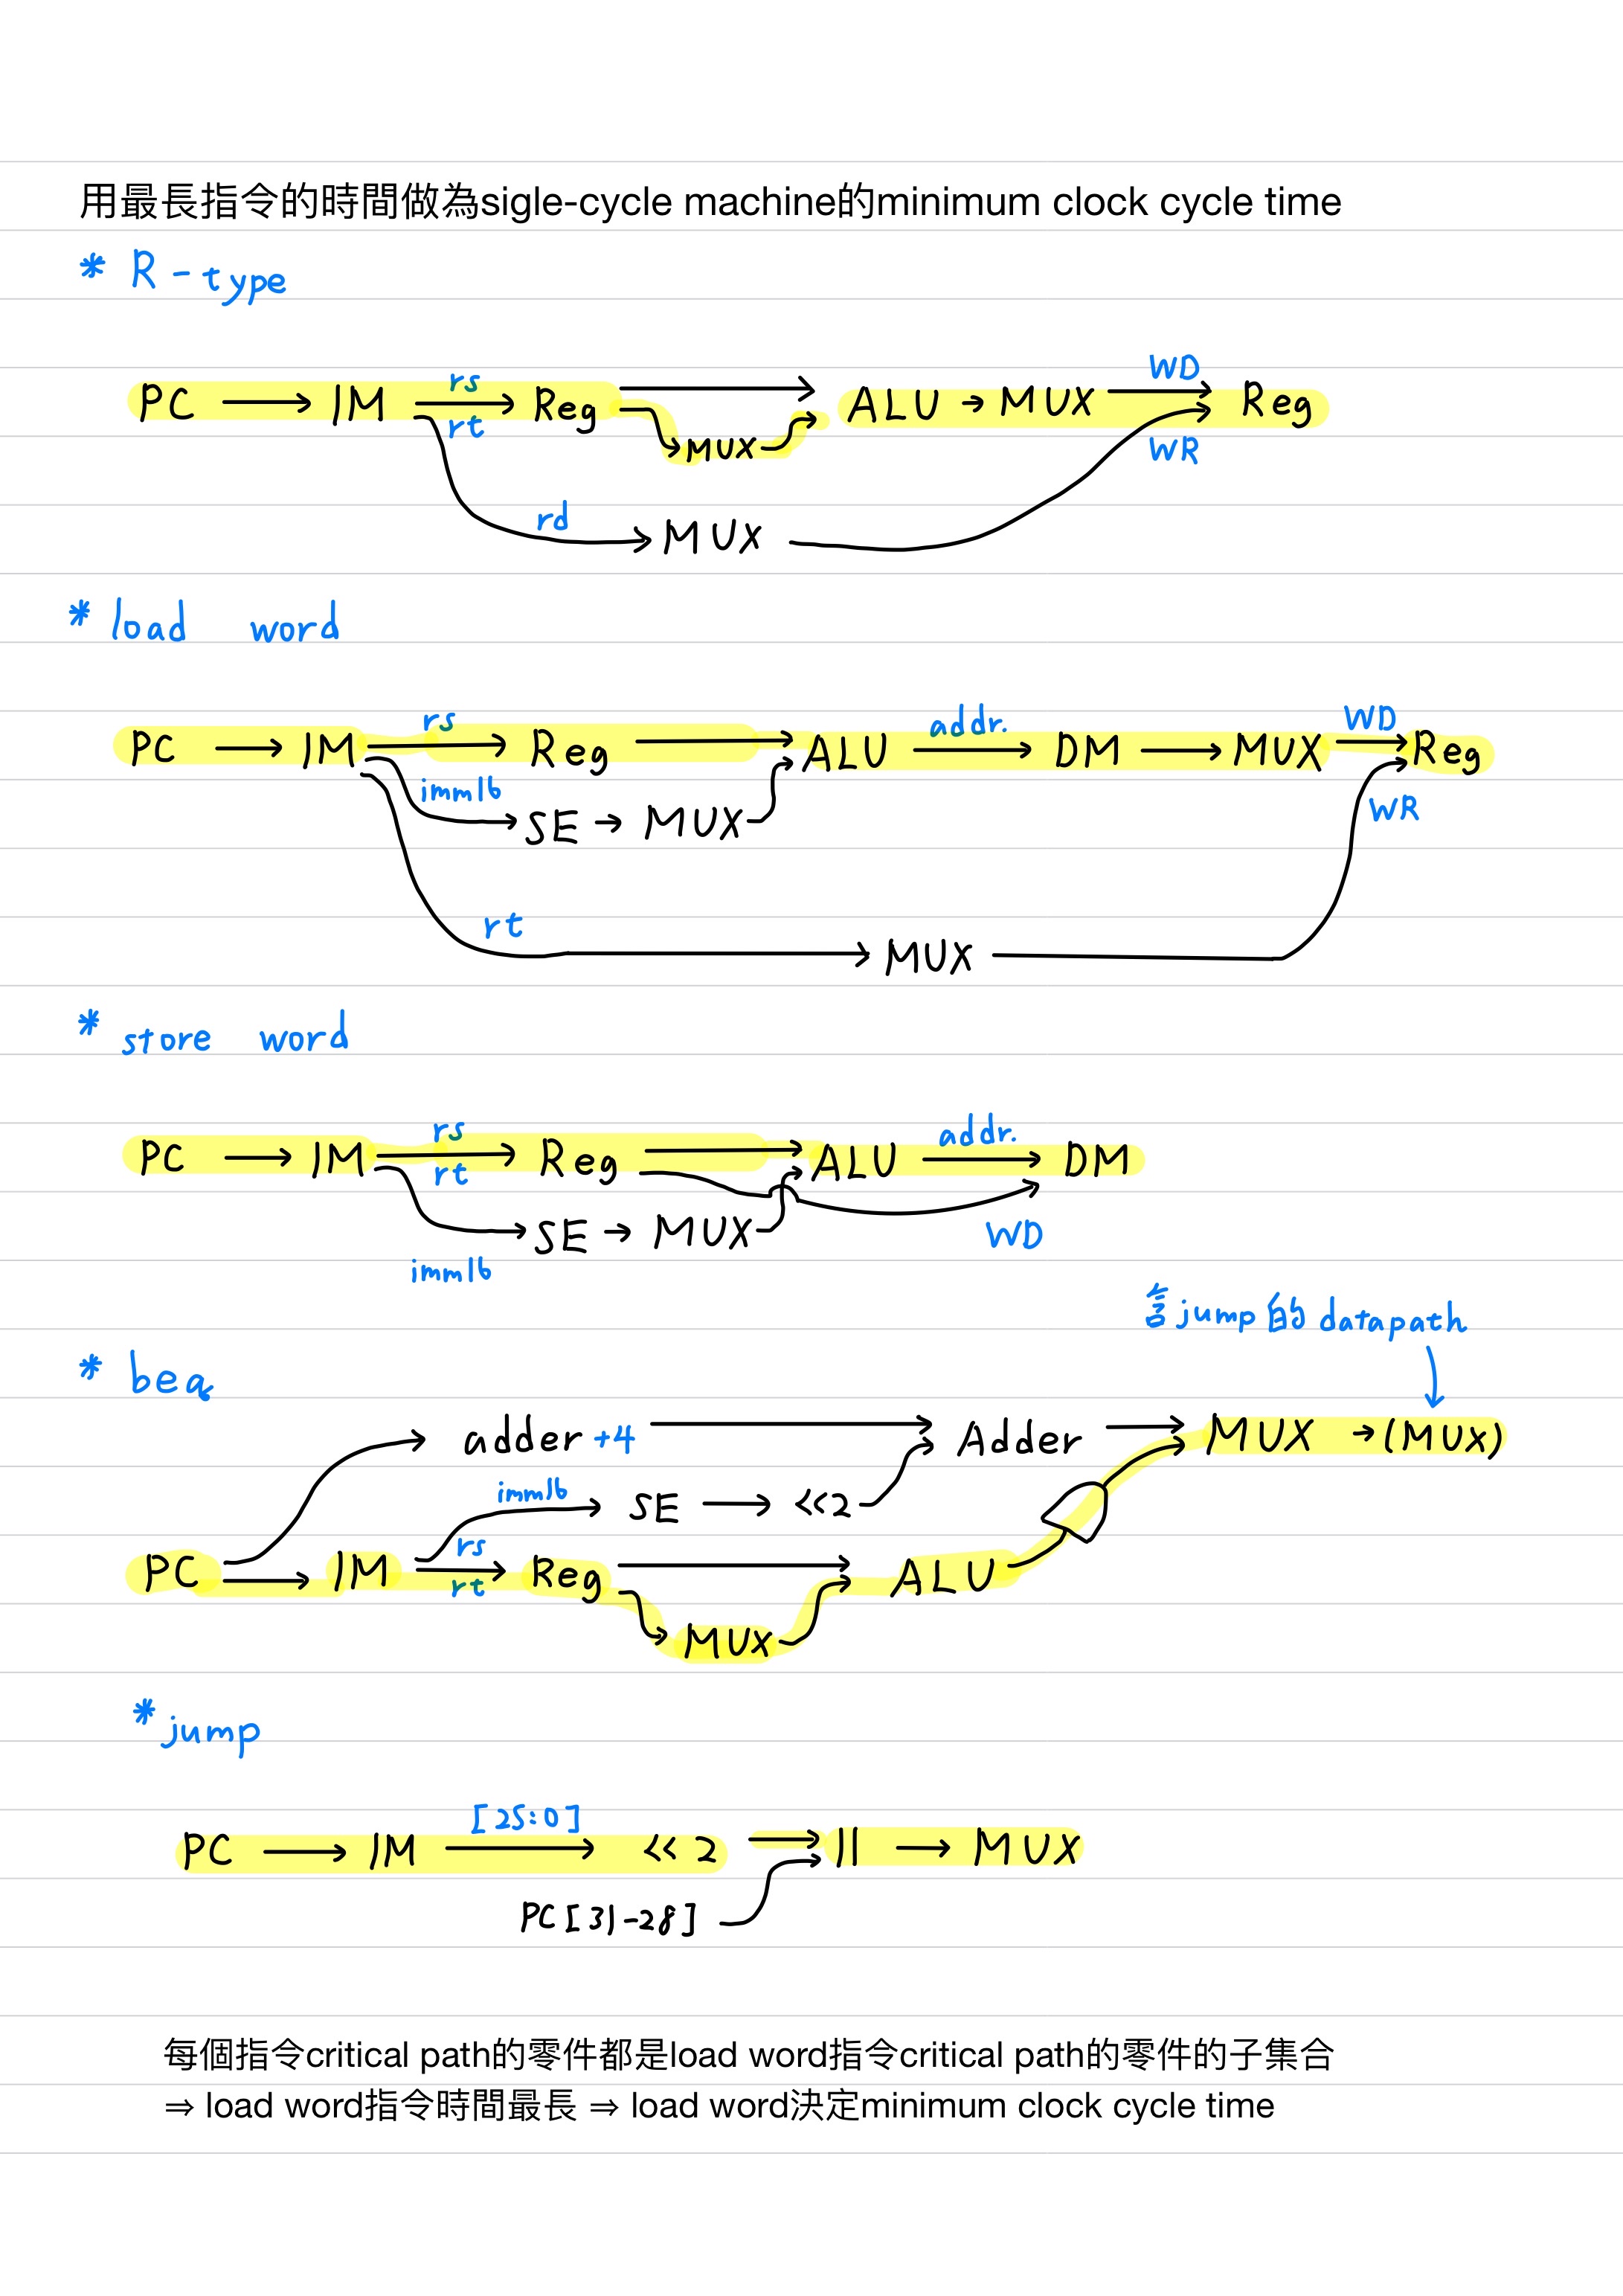 用最長指令的時間做為sigle-cycle machine的minimum clock cycle time
* R-type
PC → IM rs rt → Reg → ALU → MUX WD → Reg
MUX WR
rd → MUX
* load word
PC → IM rs → Reg → ALU addr. → DM → MUX WD → Reg
imm16 SE → MUX WR
rt → MUX
* store word
PC → IM rs rt → Reg → ALU addr. → DM
imm16 SE → MUX WD
含jump的datapath
* beq
adder +4 → Adder → MUX → (MUX)
imm16 → SE → <<2
PC → IM rs rt → Reg → ALU
MUX
* jump
PC → IM [25:0] → <<2 → || → MUX
PC[31-28]
每個指令critical path的零件都是load word指令critical path的零件的子集合
⇒ load word指令時間最長 ⇒ load word決定minimum clock cycle time